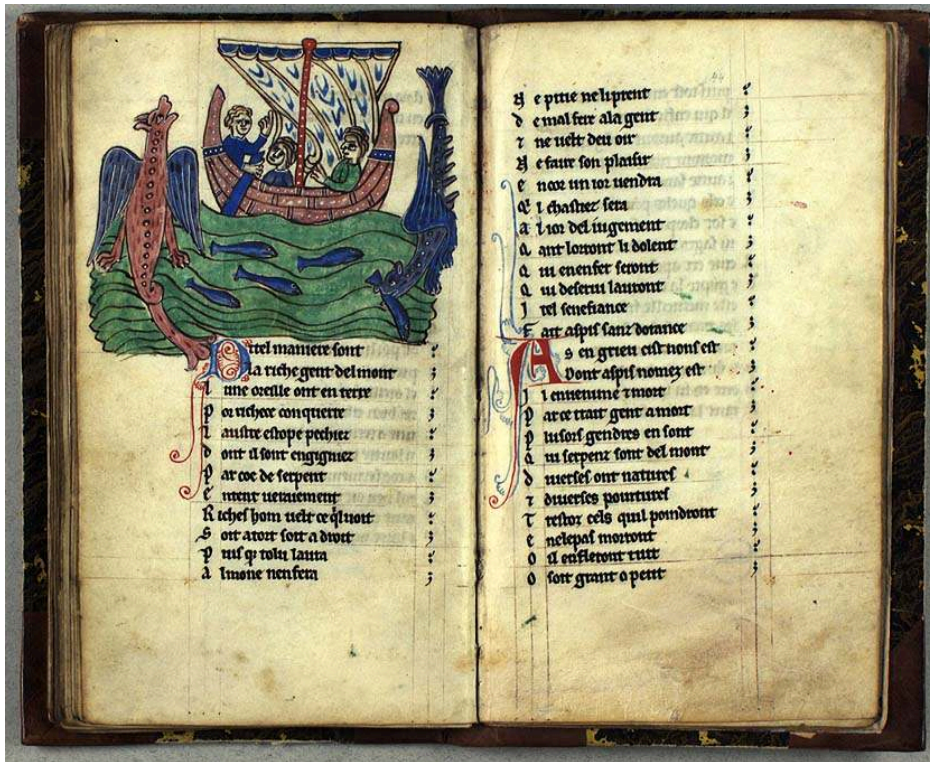 D itel maniere sont
L a riche gent del mont
L une oreille ont en terre
P or richece conquerre
L autre estope pechiez
d ont il sont engigniez
P ar coe de serpent
E ntent veraiement
R iches hom velt ce qͥl voit
S oit a tort soit a droit
P uis qͥ tolu laura
A lmone nen fera
44
N e pitie ne li prent
d e mal fere a la gent
⁊ ne velt deu oir
N e faire son plaisir
e ncor un ior uendra
Q i l chastiez sera
a l ior del iugement
Q ant lorront li dolent
Q ui en enfer seront
Q ui deserui lauront
I tel senefiance
F ait aspis sanz dotance
A s en grieu cist nons est
D ont aspis nomez est
I l enuenime ⁊ mort
P ar ce trait gent a mort
P lusors gendres en sont
Q ui serpenz sont del mont
d iuerses ont natures
⁊ diuerses pointures
T restoz cels quil poindront
e nelepas morront
O il enfleront tuit
O soit grant o petit